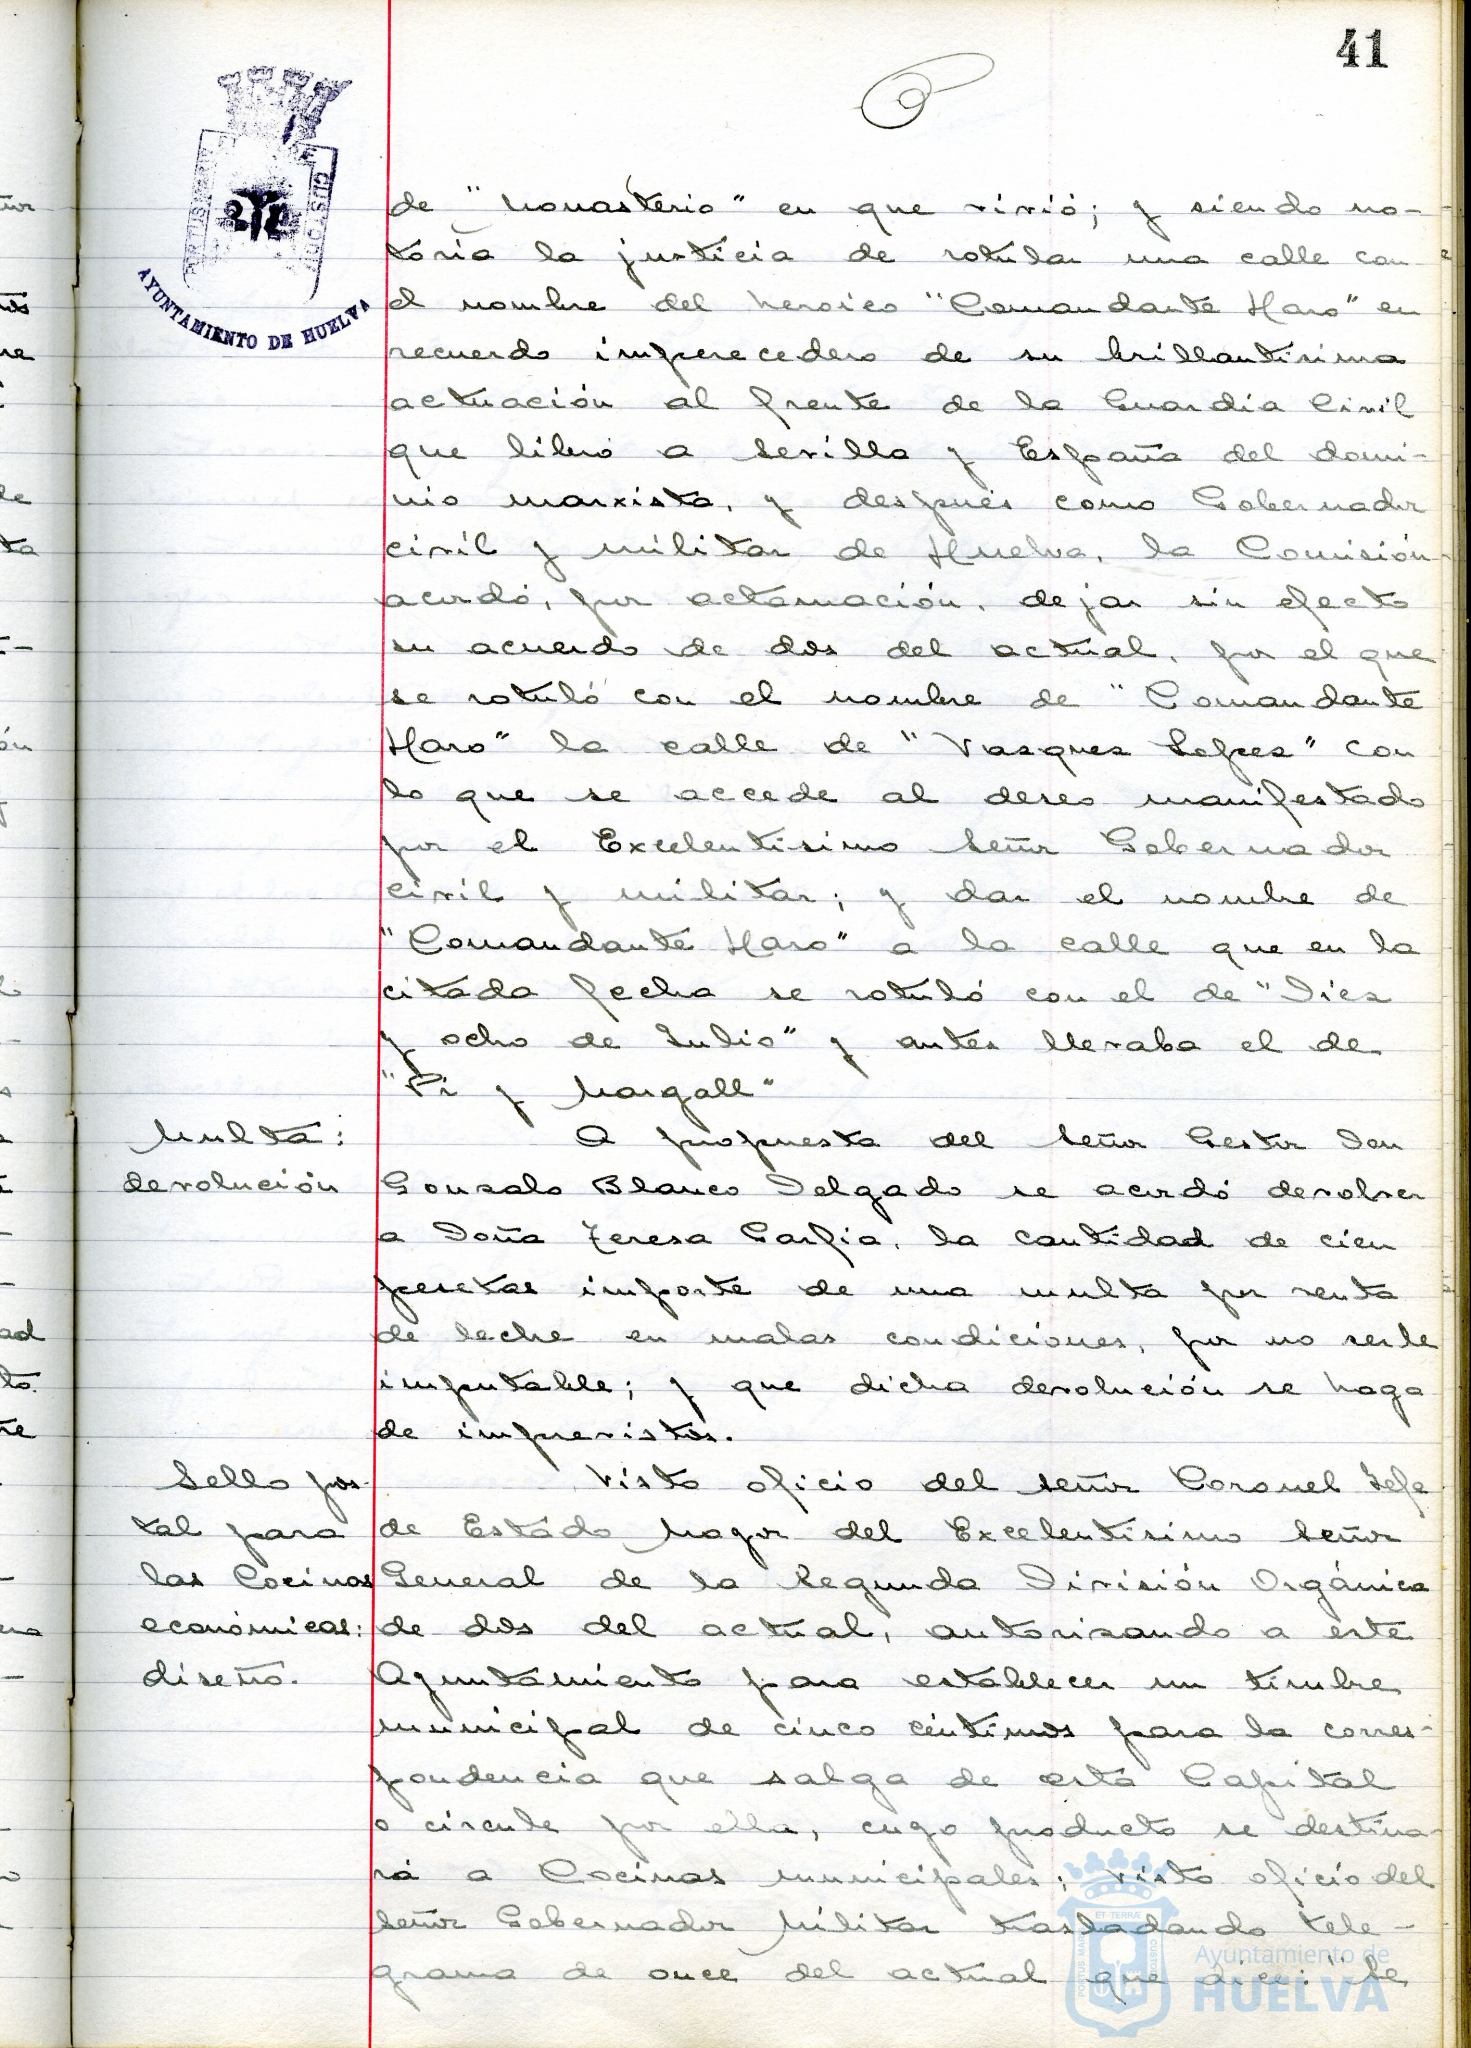 41
AYUNTAMIENTO DE HUELVA
de "Monasterio" en que vivió; y siendo no-
toria la justicia de rotular una calle con
el nombre del heroico "Comandante Haro" en
recuerdo imperecedero de su brillantisima
actuación al frente de la Guardia Civil
que libró a Sevilla y España del domi-
nio marxista, y después como Gobernador
civil y militar de Huelva, la Comisión
acordó, por aclamación, dejar sin efecto
su acuerdo de dos del actual, por el que
se rotuló con el nombre de "Comandante
Haro" la calle de "Vasques Lopes" con
lo que se accede al deseo manifestado
por el Excelentisimo Señor Gobernador
civil y militar; y dar el nombre de
"Comandante Haro" a la calle que en la
citada fecha se rotuló con el de "Diez
y ocho de Julio" y antes llevaba el de
"Pi y Margall"
Multa:
devolución
A propuesta del Señor Gestor Don
Gonzalo Blanco Delgado se acordó devolver
a Doña Teresa Garfia, la cantidad de cien
pesetas importe de una multa por venta
de leche en malas condiciones, por no serle
imputable; y que dicha devolución se haga
de imprevistos.
Sello pos-
tal para
las Cocinas
económicas:
diseño.
Visto oficio del Señor Coronel Jefe
de Estado Mayor del Excelentisimo Señor
General de la Segunda División Orgánica
de dos del actual, autorizando a este
Ayuntamiento para establecer un timbre
municipal de cinco céntimos para la corres-
pondencia que salga de esta Capital
o circule por ella, cuyo producto se destina-
rá a Cocinas municipales; visto oficio del
Señor Gobernador Militar trasladando tele-
grama de once del actual que dice: "Se
Ayuntamiento de
HUELVA